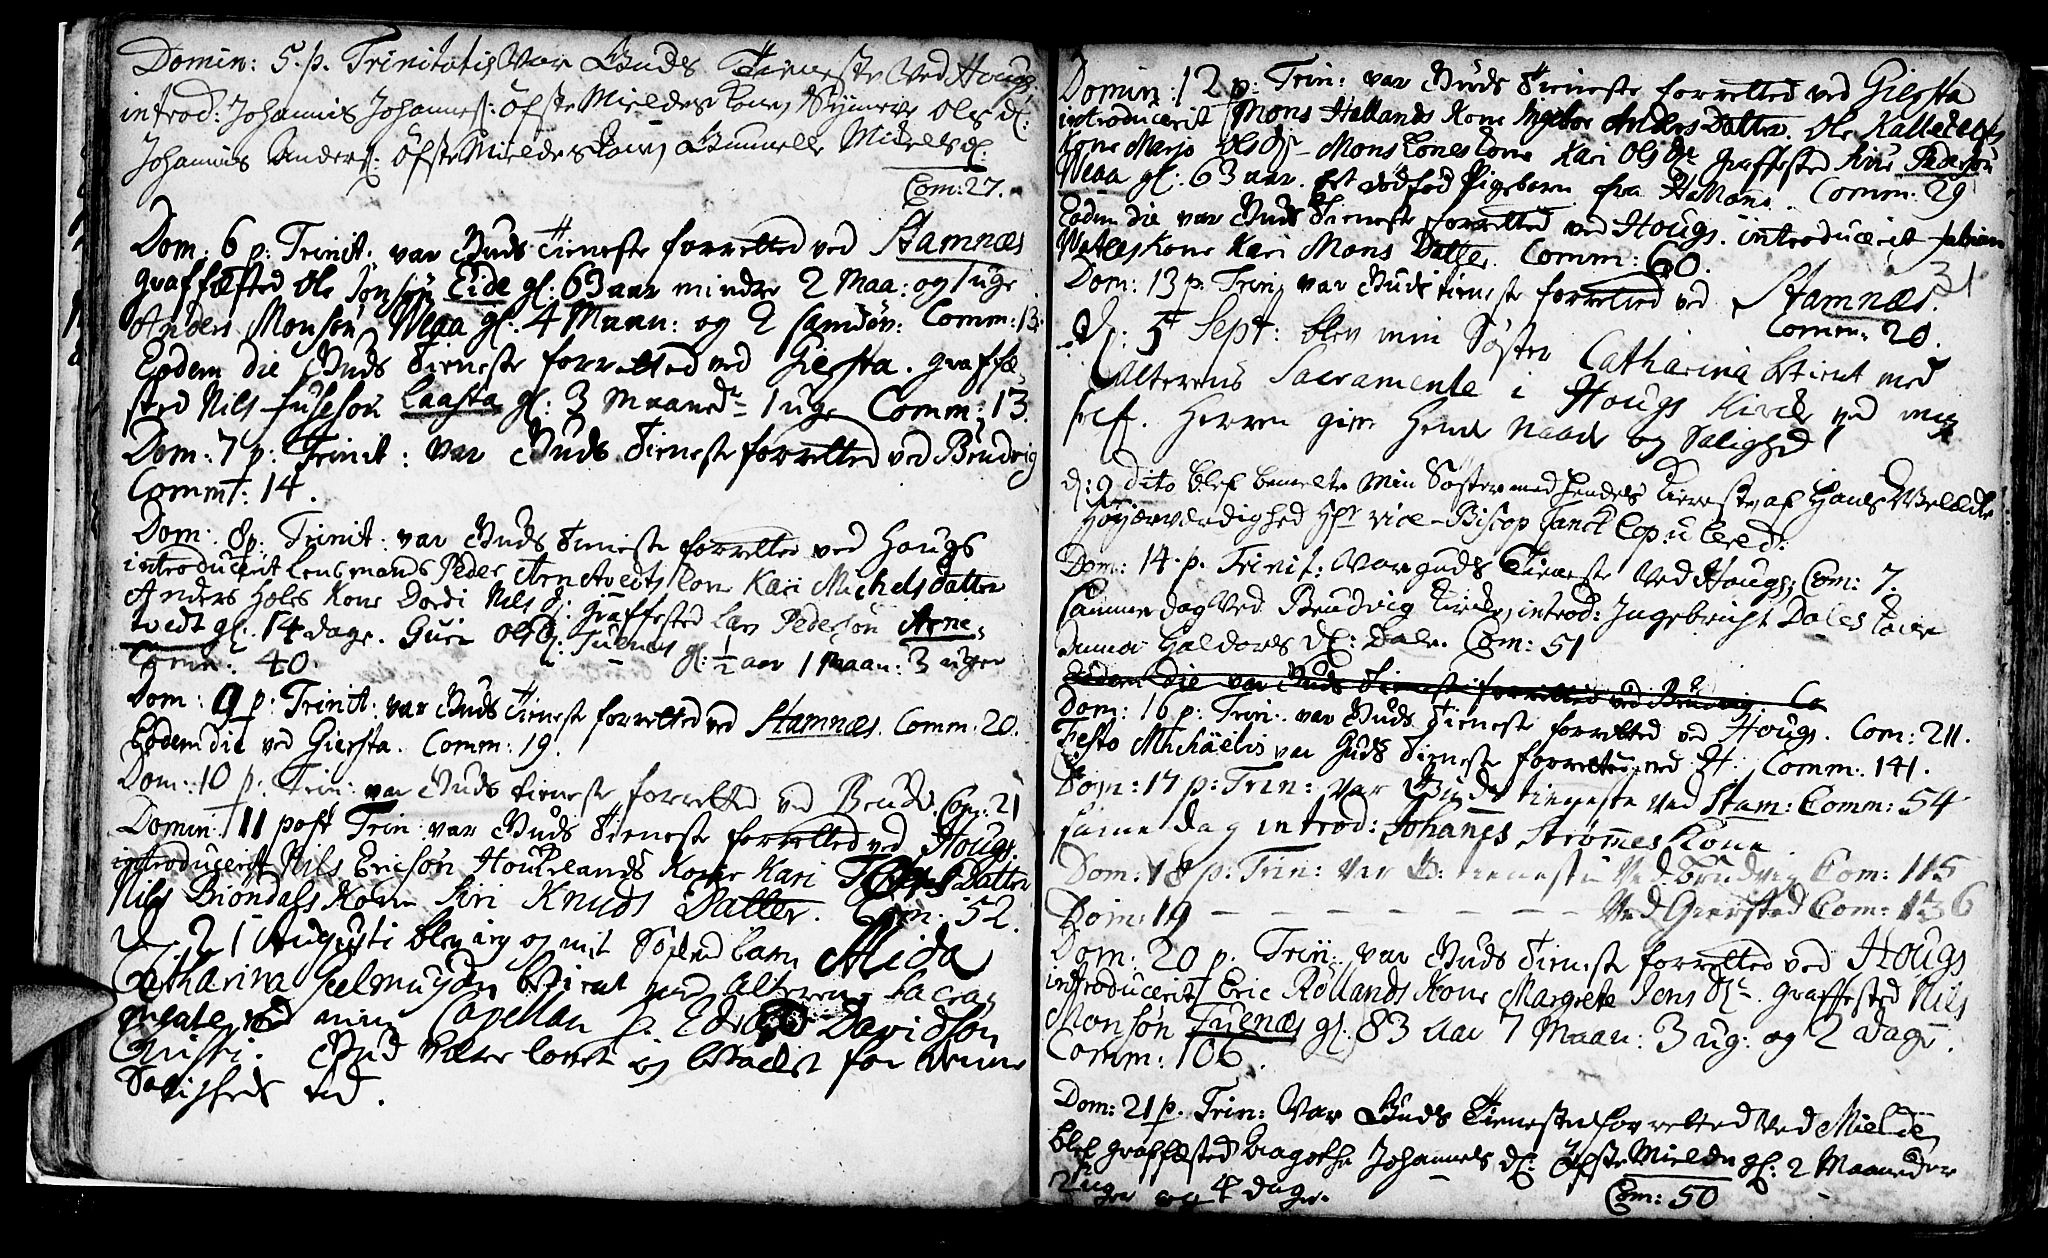 Domin: 5. p. Trinitatis Var Guds Tieneste Ved Houg:
introd: Johannis Johannes: Öfste Mieldes Kone, Synneve Ols d:
Johannis Anders: Öfste Mieldes Kone, Gunnelle Mickels d:
Com: 27.
Dom: 6 p: Trinit: var Guds Tieneste forretted ved Stamnæs
graffæsted Ole Jonsøn Eide gl: 63 aar mindre 2 Maa: og 1 uge
Anders Monsøn Weaa gl: 4 Maan: og 2 Comm: 13.
Eodem die Guds Tieneste forretted ved Giersta. graffæ-
sted Nils Laasta gl: 3 Maaned 1 uge Comm: 13.
Dom: 7 p: Trinit: var Guds Tieneste forretted ved Brudvig
Comm: 14.
Dom: 8 p: Trinit: var Guds Tieneste forretted ved Hougs
introducerit Lensmands Peder Arnetvedts Kone Kari Michels datter
Anders Holes Kone Dordi Nils d: graffested Lars Pedersøn Arne-
tvedt gl: 14 dage. Guri Ols d: Fuenæs gl: 1/2 aar 1 Maan: 3 uger
Comm: 40.
Dom: 9 p: Trinit: var Guds Tieneste forretted ved Stamnæs. Comm: 20.
Eodem die ved Giersta. Comm: 19.
Dom: 10 p. Trin: var Guds tieneste forretted ved Brudv. Com: 21
Domin: 11 post Trin: var Guds Tieneste forretted ved Hougs.
introducerit Nils Ericsøn Houklands Kone Kari Datter
Nils Brøndals Kone Siri Knuds Datter. Com: 52.
D. 21 Augusti blev ieg og mit Alida
Catharina Geelmuyden betient med Alterens Sacra-
mente ved min Capellan Hr. Davidsøn
Gud være lovet og for denne
Saligheds tid.
Domin: 12 p: Trin: var Guds Tieneste forretted ved Giersta
introducerit Mons Hallands Kone Ingebor Anders Datter. Ole
Kone Ols dr Mons Kone Kari Ols dr graffested
Weaa gl: 63 aar. Et dødfød Pigebarn fra Comm: 29
Eodem die var Guds Tieneste forretted ved Hougs. introducerit Fabian
Kone Kari Mons Datter. Comm: 60.
31
Dom: 13 p. Trin: var Guds tieneste forretted ved Stamnæs.
Comm: 20.
D: 5t Sept: blev min Søster Catharina betient med
Alterens Sacramente i Hougs Kirke ved mig
self. Herren give hende Naade og Salighed!
d: 9 dito blef bemelte Min Søster med hendes Kiereste af Hans Velædle
Høyærværdighed Hr vice-Biscop Tanck Copulered:
Dom: 14. p. Trinit: Var guds Tieneste Ved Hougs; Com: 7.
samme dag Ved Brudvig Kirke, introd: Ingebricht Dales Kone
Anna Haldors d: Dale. Com: 51
Eodem die var Guds Tieneste forretted ved Brudvig. Co
Dom: 16 p: Trin: var Guds Tieneste forretted ved Hougs. Com: 211.
Festo Michäelis var Guds Tieneste forretted ved H. Comm: 141.
Dom: 17 p: Trin: var Guds tieneste ved Stam: Comm: 54
samme dag introd: Johanes Strømes Kone
Dom: 18 p: Trin: var G: tieneste ved Brudvig Com: 115
Dom: 19 — — — — — — — Ved Giersted Com: 136
Dom. 20 p. Trin: var Guds Tieneste forretted ved Hougs
introducerit Eric Röllands Kone Margrete Jens dr. graffested Nils
Monsøn Fuenæs gl: 83 aar 7 Maan: 3 ug: og 2 dage.
Comm: 106.
Dom: 21 p. Trin: Var Guds Tieneste forretted Ved Mielde
blef graffæsted Johannes d: Öfste Mielde gl: 2 Maaneder
2 uger og 4 dager.
Com: 50